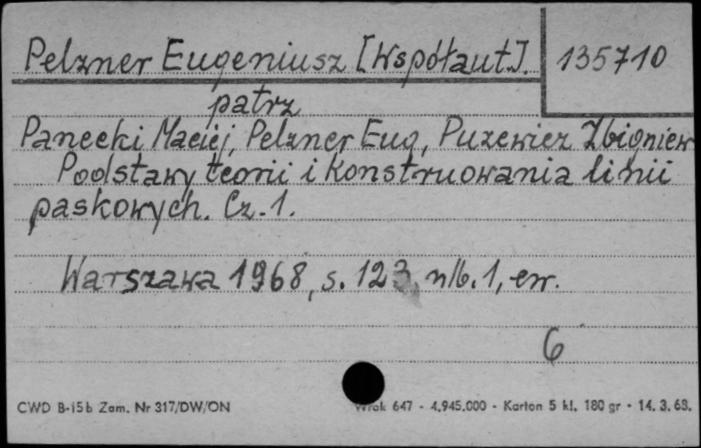 Pelzner Eugeniusz [Współaut.]. 135710
patrz
Panecki Maciej, Pelzner Eug., Puzewicz Zbigniew
Podstawy teorii i konstruowania linii
paskowych. Cz. 1.
Warszawa 1968, s. 123, nlb. 1, err.
6
CWD B-15b Zam. Nr 317/DW/ON
647 - 4.945.000 - Karton 5 kl. 180 gr - 14. 3. 63.